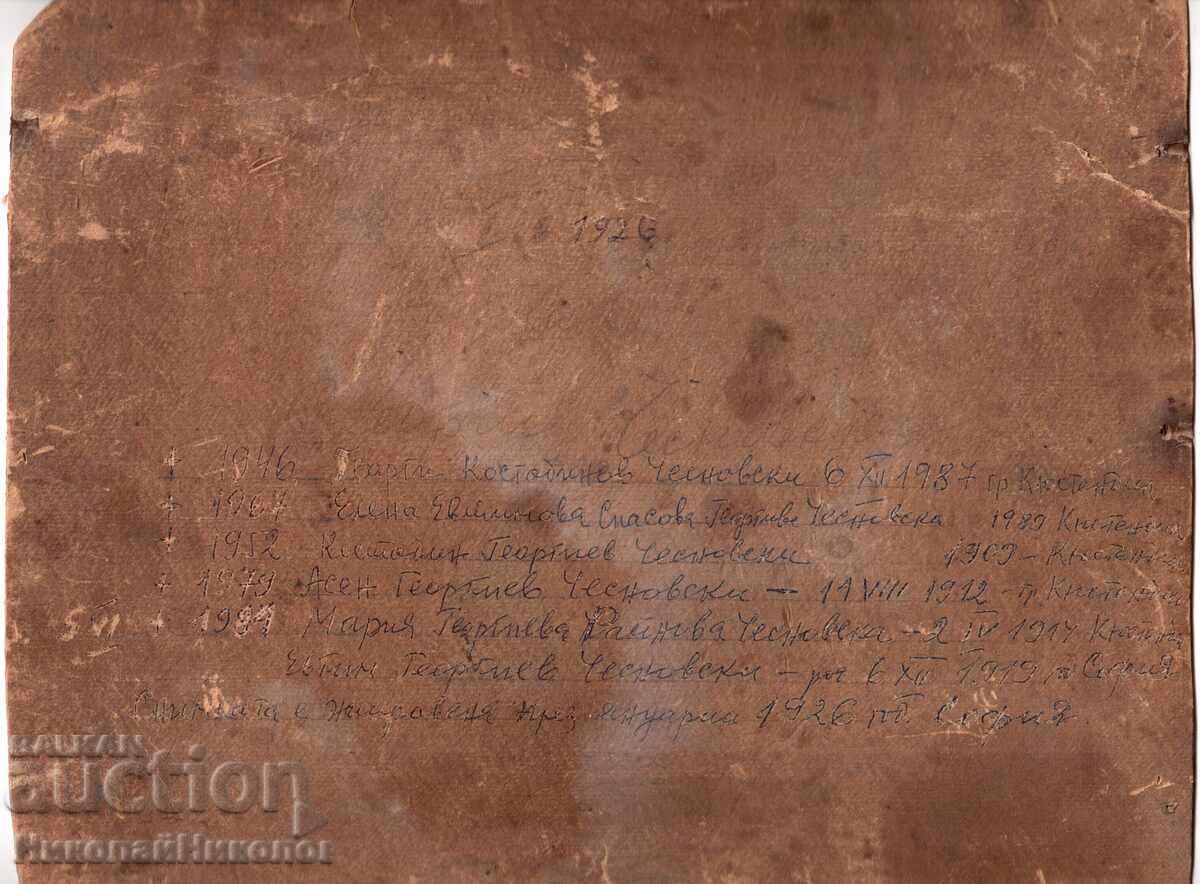 1926
† 1946 - Георги Костадинов Чесновски 6 XII 1887 гр Кюстендил
† 1967 Елена Евтимова Спасова Георгиева Чесновска 1889 Кюстендил
† 1952 - Костадин Георгиев Чесновски 1909 - Кюстендил
† 1979 Асен Георгиев Чесновски - 11 VIII 1912 - гр. Кюстендил
5 VI † 1981 Мария Георгиева Чесновска - 2 IV 1914
Евтим Георгиев Чесновски - 6 XII 1919 София
Снимката е направена през януари 1926 год София.
BALKAN
auction
НиколайНиколов